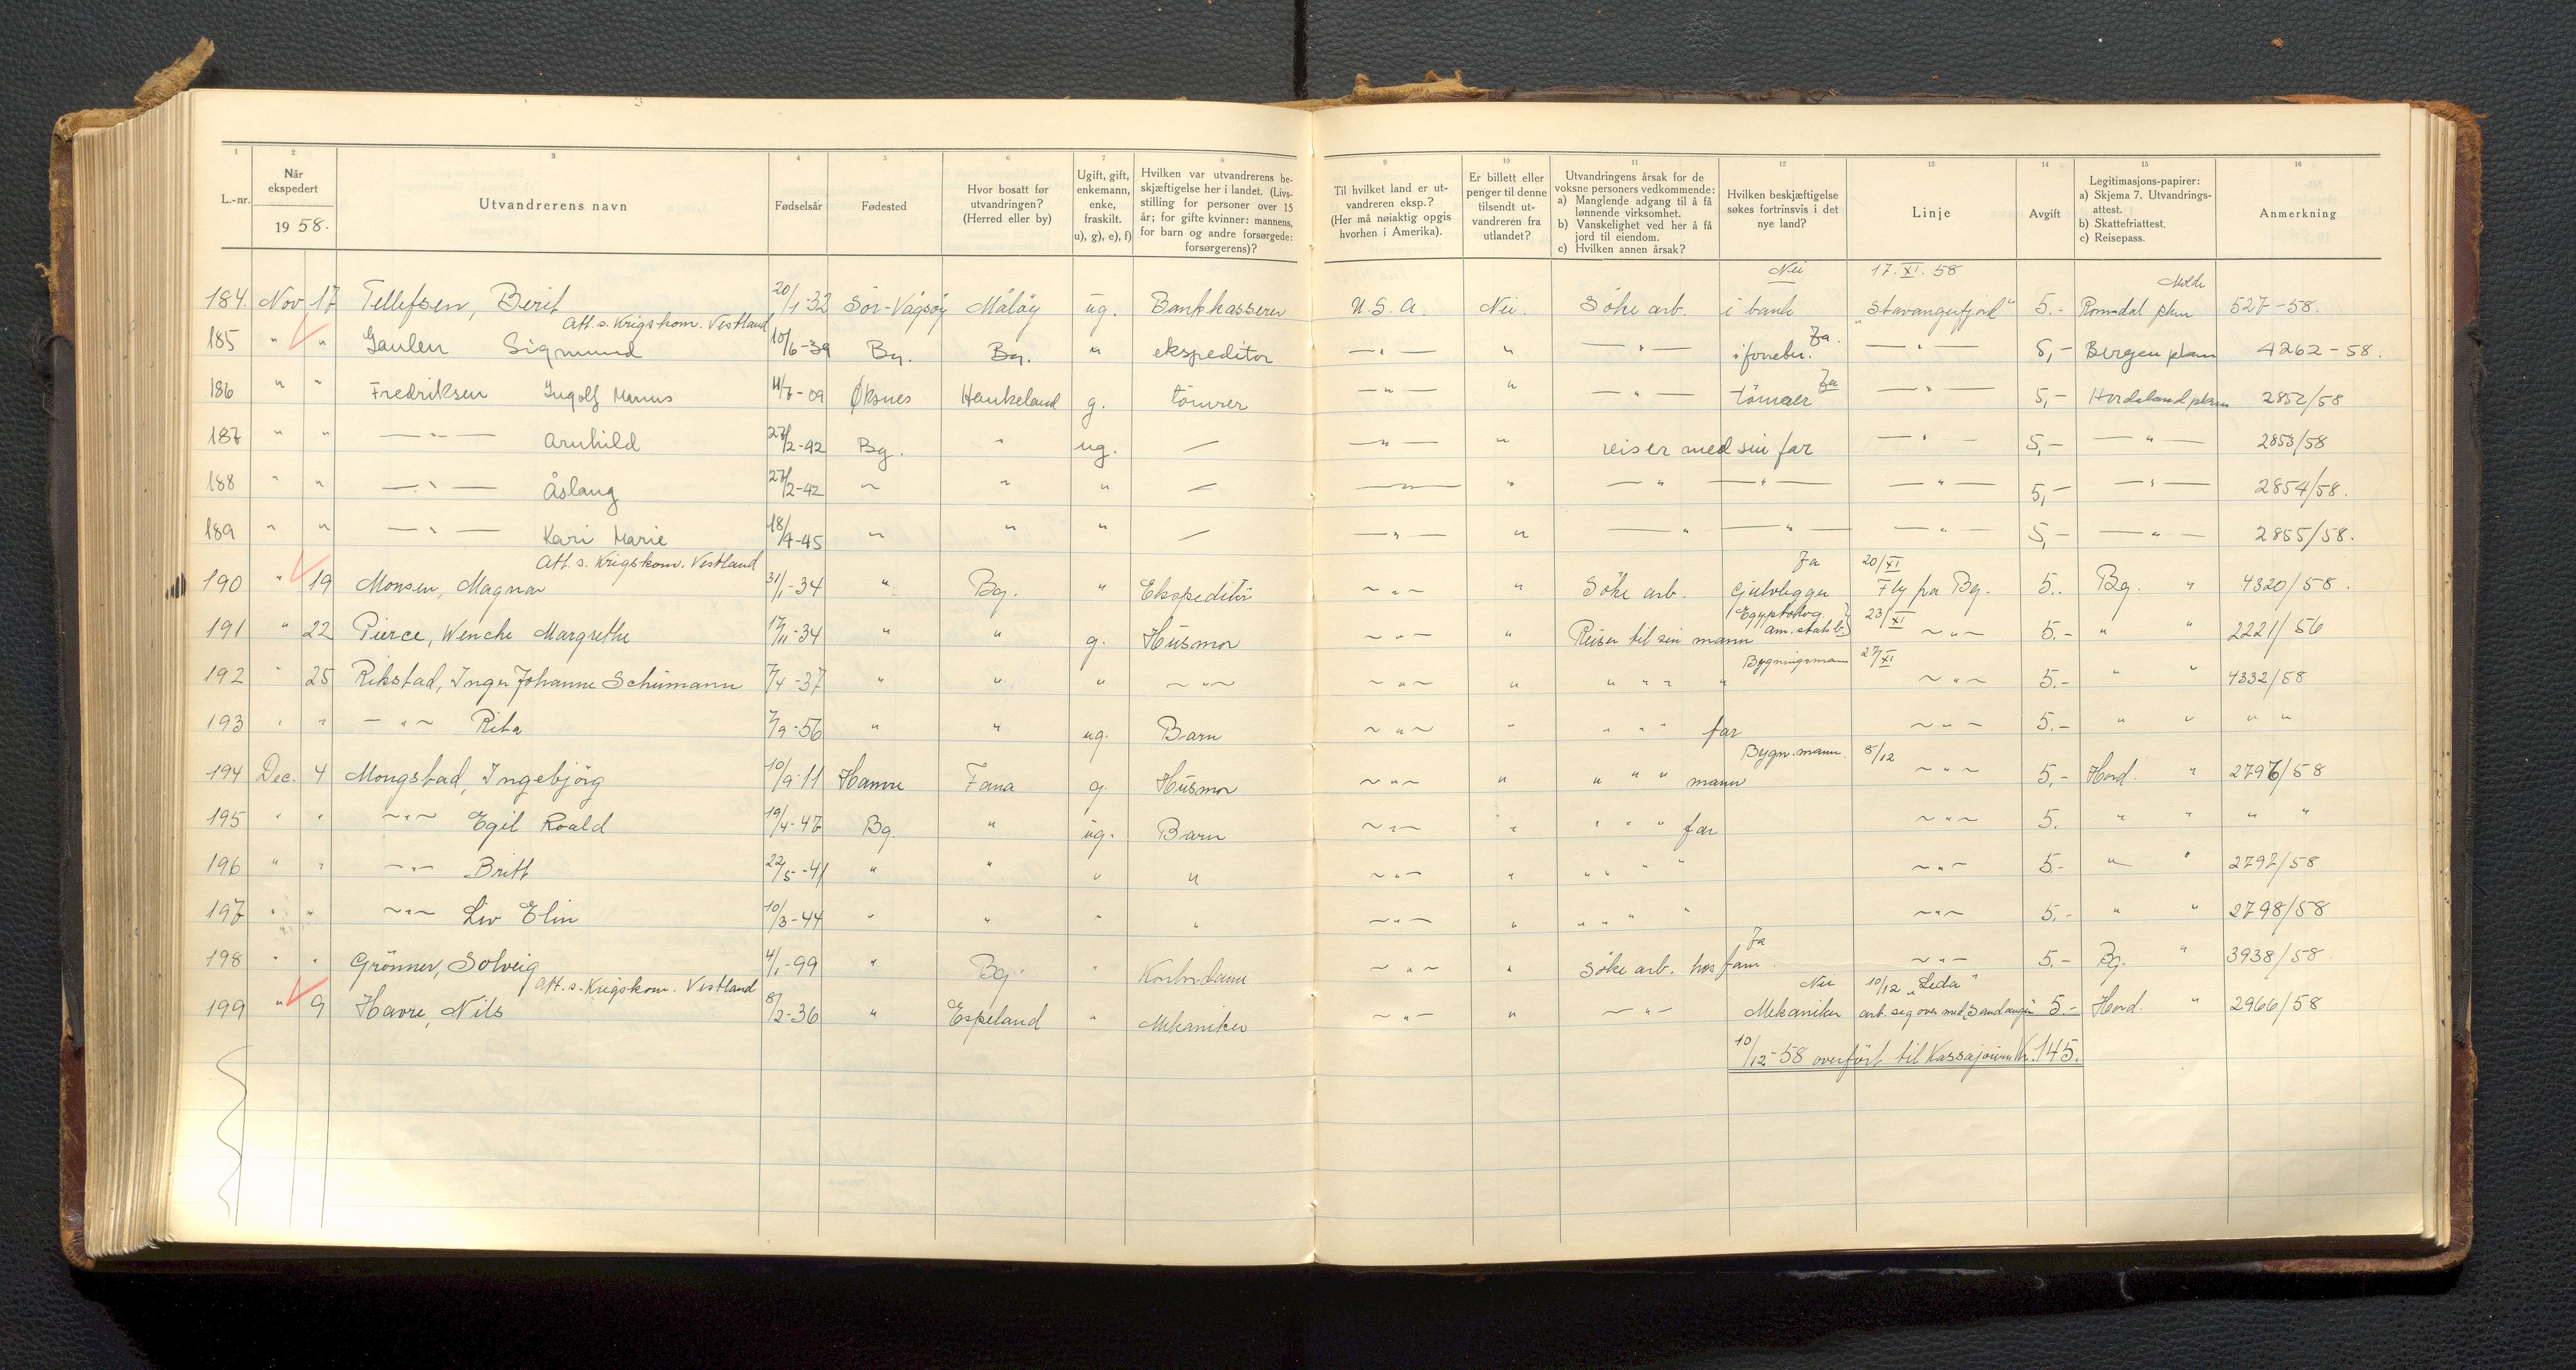 1 2 3 4 5 6 7 8 9 10 11 12 13 14 15 16
L.-nr. | Når ekspedert 1958. | Utvandrerens navn | Fødselsår | Fødested | Hvor bosatt før utvandringen? (Herred eller by) | Ugift, gift, enkemann, enke, fraskilt. u), g), e), f) | Hvilken var utvandrerens beskjæftigelse her i landet. (Livsstilling for personer over 15 år; for gifte kvinner: mannens, for barn og andre forsørgede: forsørgerens)? | Til hvilket land er utvandreren eksp.? (Her må nøiaktig opgis hvorhen i Amerika). | Er billett eller penger til denne tilsendt utvandreren fra utlandet? | Utvandringens årsak for de voksne personers vedkommende: a) Manglende adgang til å få lønnende virksomhet. b) Vanskelighet ved her å få jord til eiendom. c) Hvilken annen årsak? | Hvilken beskjæftigelse søkes fortrinsvis i det nye land? | Linje | Avgift | Legitimasjons-papirer: a) Skjema 7. Utvandringsattest. b) Skattefriattest. c) Reisepass. | Anmerkning
Nei 17. XI. 58 Molde
184. Nov 17 Tellefsen, Berit 20/1-32 Sör-Vågsöy Målöy ug. Bankkasserer U.S.A. Nei. Söke arb. i bank "Stavangerfjord" 5.- Romsdal pkm 527-58.
Att. s. Krigskom. Vestland Ja.
185 " " Gaulen Sigmund 10/6-39 Bg. Bg. " ekspeditör —"— " —"— i forretn. —"— 5,- Bergen pkm 4262-58.
Ja
186 " " Fredriksen Ingolf Marius 11/7-09 Øksnes Haukeland g. tömrer —"— " —"— tömrer —"— 5,- Hordaland pkm 2852/58
187 " " —"— Arnhild 27/2-42 Bg. " ug. — —"— " reiser med sin far —"— 5,- —"— 2853/58
188 " " —"— Åslaug 27/2-42 " " " — —"— " —"— —"— —"— 5,- —"— 2854/58.
189 " " —"— Kari Marie 18/4-45 " " " — —"— " —"— —"— —"— 5,- —"— 2855/58.
Att. s. Krigskom. Vestland Ja 20/XI
190 " 19 Monsen, Magnar 31/1-34 " Bg. " Ekspeditör —"— " Söke arb. Gulvlegger Fly fra Bg. 5.- Bg. " 4320/58.
Egyptolog. am. statsb. 23/XI
191 " 22 Pierce, Wenche Margrethe 17/11-34 " " g. Husmor —"— " Reiser til sin mann —"— 5.- " " 2221/56
Bygningsmann 27/XI
192 " 25 Rikstad, Inger Johanne Schumann 7/4-37 " " " —"— —"— " " " " " —"— 5.- " " 4332/58
193 " " —"— Rita 7/9-56 " " ug. Barn —"— " " " " far —"— 5.- " " " "
Bygn.mann. 5/12
194 Dec. 4 Mongstad, Ingebjörg 10/9-11 Hamre Fana g. Husmor —"— " " " " mann —"— 5,- Hord. " 2796/58
195 " " —"— Egil Roald 19/4-47 Bg. " ug. Barn —"— " " " " far —"— 5. " " " "
196 " " —"— Britt 22/5-41 " " " " —"— " " " " " —"— 5.- " " 2797/58
197 " " —"— Liv Elin 10/3-44 " " " " —"— " " " " " —"— 5.- " " 2798/58
Ja
198 " " Grönner, Solveig 4/1-99 " Bg. " Kontordame —"— " Söke arb. hos fam. —"— 5.- Bg. " 3938/58.
Att. s. Krigskom. Vestland Nei 10/12 "Leda"
199 " 9 Havre, Nils 8/2-36 " Espeland " Mekaniker —"— " —"— Mekaniker arb. seg over med "Sandanger" 5.- Hord. " 2966/58
10/12-58 overfört til Kassajourn. Kr. 145.